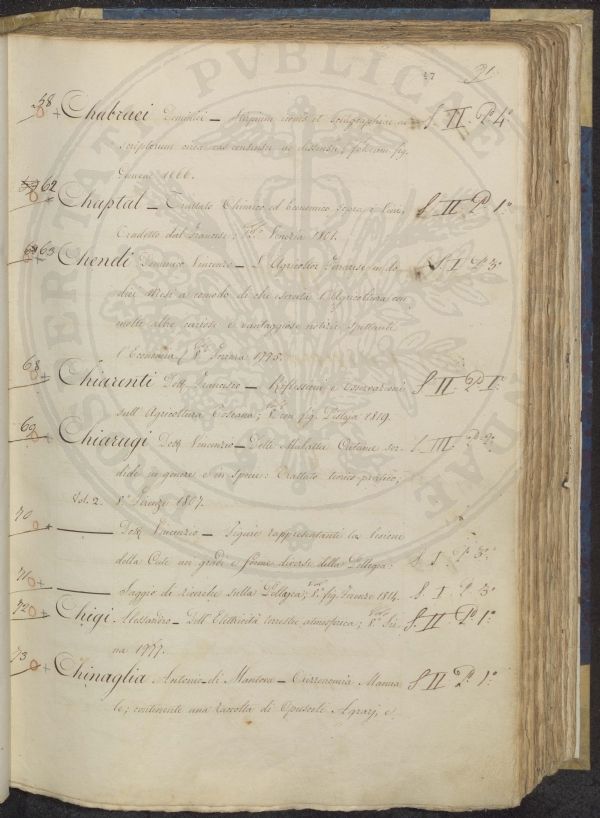 47 91
58 Chabraei Dominici — Stirpium icones et sciagraphiae S. II. P. 4.
scriptorum circa eas consensu ac dissensu; fol. cum fig.
Genevae 1666.
62 Chaptal — Trattato Chimico ed Economico sopra i Vini, S. II. P. 1.
Tradotto dal Francese; 8.° Venezia 1801.
63 Chendi Domenico Vincenzo — L'Agricoltor Ferrarese in do S. I. P. 3.
dici Mesi a comodo di chi esercita l'Agricoltura con
molte altre curiose e vantaggiose notizie Spettanti
l'Economia; 8.° Ferrara 1775.
68 Chiarenti Dott. Francesco — Riflessioni e Osservazioni S. II P. I.
sull'Agricoltura Toscana; 8.° con fig. Pistoja 1819.
69 Chiarugi Dott. Vincenzio — Delle Malattie Cutanee sor S. III. P. 2.
dide in genere e in specie: Trattato teorico-pratico;
Vol. 2. 8.° Firenze 1807.
70 — Dott. Vincenzio — Figure rappresentanti la lesione
della Cute nei gradi e forme diverse della Pellagra: S. I. P. 3.
71 — Saggio di ricerche sulla Pellagra; 8.° fig. Firenze 1814. S. I. P. 3.
72 Chigi Alessandro — Dell'Elettricità terrestre atmosferica; 8.° Sie S. II. P. 1.
na 1777.
73 Chinaglia Antonio di Mantova — Ozzenomia Manua S. II P. 1.
le; contenente una raccolta di Opuscoli Agrarj, e